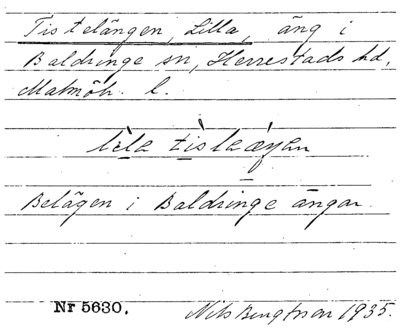 Tistelängen, Lilla, äng i
Baldringe sn, Herrestads hd,
Malmöh. l.
Belägen i Baldringe ängar.
Nr 5630. Nils Bengtson 1935.